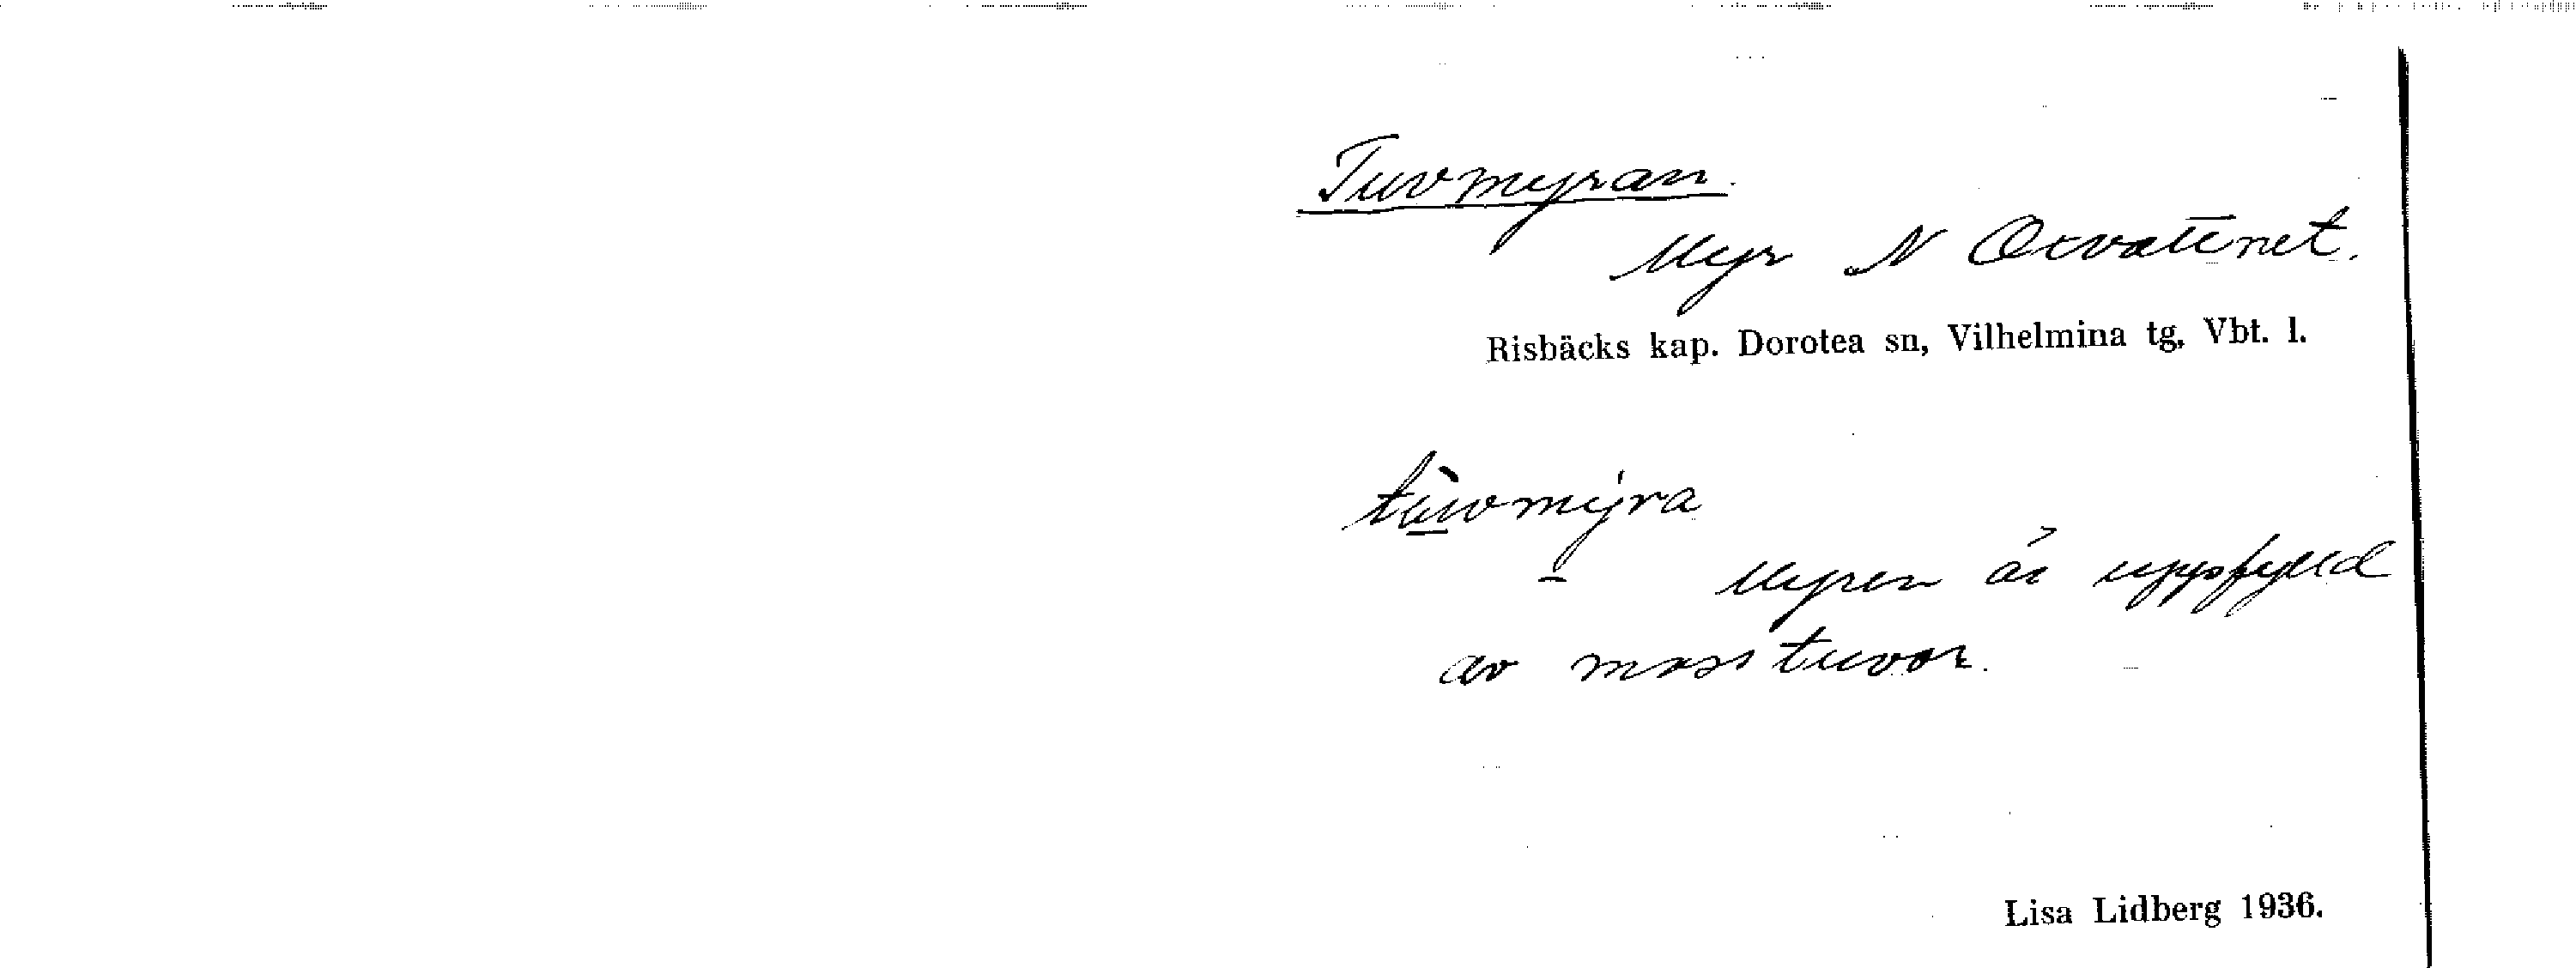 Tuvmyran.
Myr N Orvattnet.
Risbäcks kap. Dorotea sn, Vilhelmina tg, Vbt. l.
Myren är uppfylld
av mosstuvor.
Lisa Lidberg 1936.